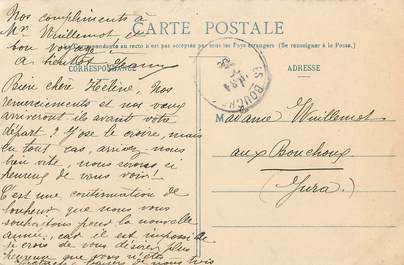 Nos compliments à
Mr Vuillemot et
bon voyage!
a bientôt
CARTE POSTALE
La Correspondance au recto n'est pas acceptée par tous les Pays étrangers (Se renseigner à la Poste.)
CORRESPONDANCE
ADRESSE
LES BOUCH
Bien chère Hélène, Nos
remerciements et nos vœux
arriveront ils avant votre
départ? J'ose le croire, mais
en tout cas, arrivez-nous
bien vite, nous serons si
heureux de vous voir!
C'est une confirmation de
bonheur que nous vous
souhaitons pour la nouvelle
année, car il est impossible
je crois de vous désirer plus
heureux que vous n'êtes
baisers de nous trois
Madame Vuillemot
aux Bouchoux
(Jura)